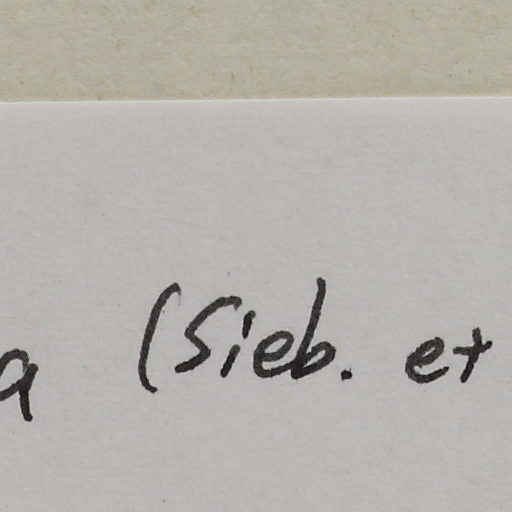 a (Sieb. et